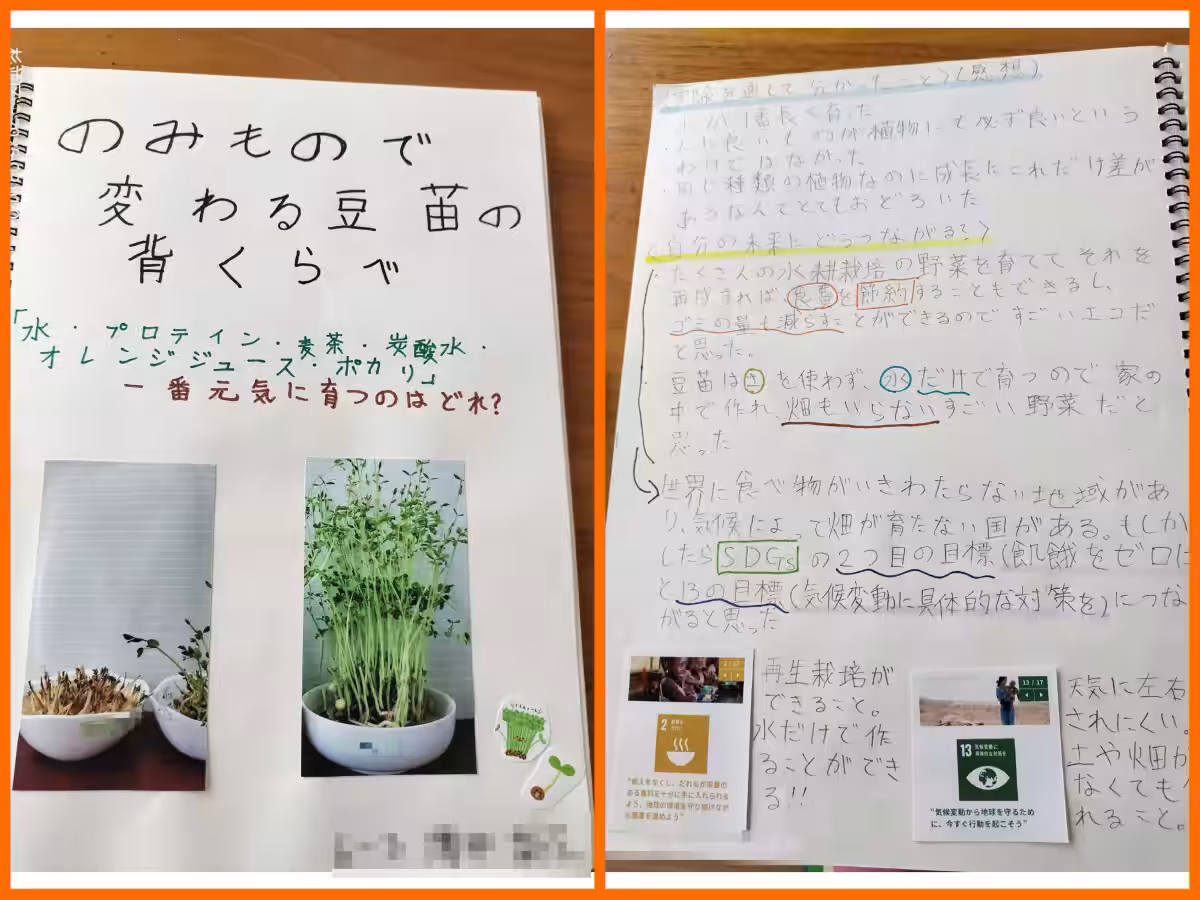 のみもので
変わる豆苗の
背くらべ
「水・プロテイン・麦茶・炭酸水・
オレンジジュース・ポカリ」
一番元気に育つのはどれ?
を通して分かったこと〉(感想)
1番長く育った
人に良いものが植物にも必ず良いという
わけではなかった
・同じ種類の植物なのに成長にこれだけ差が
あるなんてとてもおどろいた
〈自分の未来にどうつながる?〉
・たくさんの水耕栽培の野菜を育ててそれを
再成すれば、食費を節約することもできるし、
ゴミの量も減らすことができるのですごいエコだ
と思った。
・豆苗は土を使わず、水だけで育つので家の
中で作れ、畑もいらないすごい野菜だと
思った
世界に食べ物がいきわたらない地域があ
り、気候によって畑が育たない国がある。もしか
したらSDGsの2つ目の目標(飢餓をゼロに
と13の目標(気候変動に具体的な対策を)につな
がると思った
2
再生栽培が
できること。
水だけで作
ることができ
る!!
13/17
13 気候変動に
具体的な対策を
"気候変動から地球を守るため
に、今すぐ行動を起こそう"
天気に左右
されにくい。
土や畑が
なくても
れること。